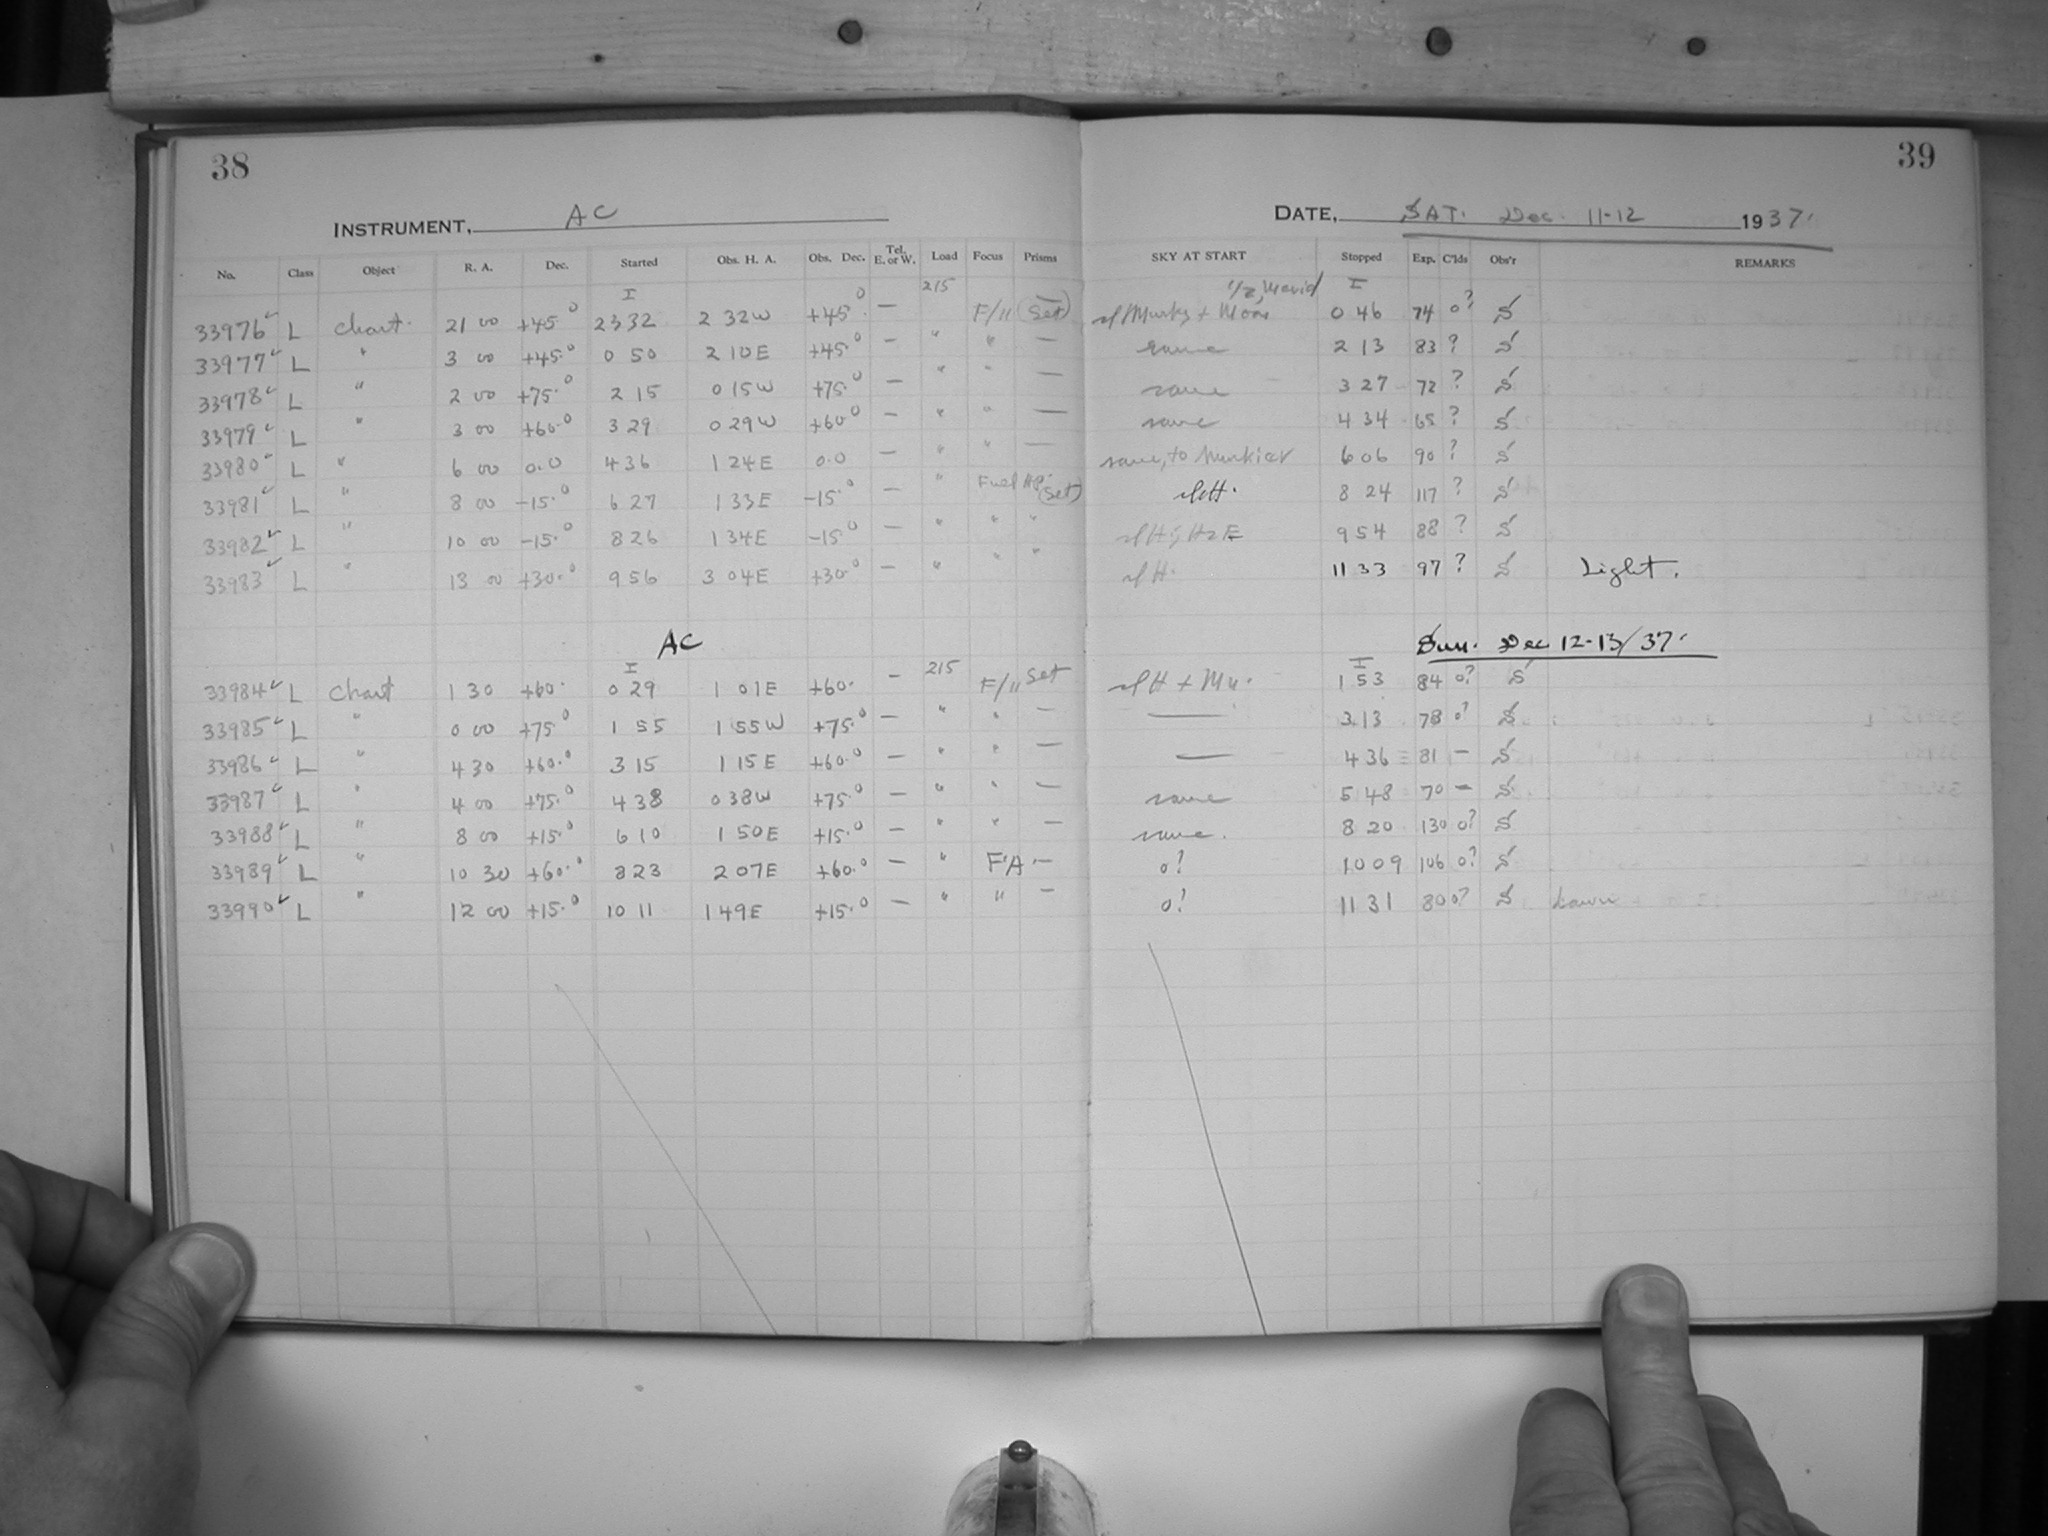 38
39
INSTRUMENT, AC
DATE, SAT. Dec. 11-12 1937.
No. Class Object R. A. Dec. Started Obs. H. A. Obs. Dec. Tel. E. or W. Load Focus Prisms SKY AT START Stopped Exp. C'lds Obs'r REMARKS
I 215 I
33976 L Chart. 21 00 +45.0 23 32 2 32W +45.0 — F/11 (Set) 0 46 74 0? S
33977 L " 3 00 +45.0 0 50 2 10E +45.0 — " " — same 2 13 83 ? S
33978 L " 2 00 +75.0 2 15 0 15W +75.0 — " " — same 3 27 72 ? S
33979 L " 3 00 +60.0 3 29 0 29W +60.0 — " " — same 4 34 65 ? S
33980 L " 6 00 0.0 4 36 1 24E 0.0 — " " — same, to Murkier 6 06 90 ? S
33981 L " 8 00 -15.0 6 27 1 33E -15.0 — " (Set) slH. 8 24 117 ? S
33982 L " 10 00 -15.0 8 26 1 34E -15.0 — " " " 9 54 88 ? S
33983 L " 13 00 +30.0 9 56 3 04E +30.0 — " " " slH. 11 33 97 ? S Light.
AC Sun. Dec 12-13/37.
I 215 I
33984 L Chart 1 30 +60. 0 29 1 01E +60. — F/11 Set slH + Mu. 1 53 84 0? S
33985 L " 0 00 +75.0 1 55 1 55W +75.0 — " " — — 3 13 78 0? S
33986 L " 4 30 +60.0 3 15 1 15E +60.0 — " " — — 4 36 81 — S
33987 L " 4 00 +75.0 4 38 0 38W +75.0 — " " — same 5 48 70 — S
33988 L " 8 00 +15.0 6 10 1 50E +15.0 — " " — same. 8 20 130 0? S
33989 L " 10 30 +60.0 8 23 2 07E +60.0 — " F'A — 0? 10 09 106 0? S
33990 L " 12 00 +15.0 10 11 1 49E +15.0 — " " — 0? 11 31 80 0? S Dawn